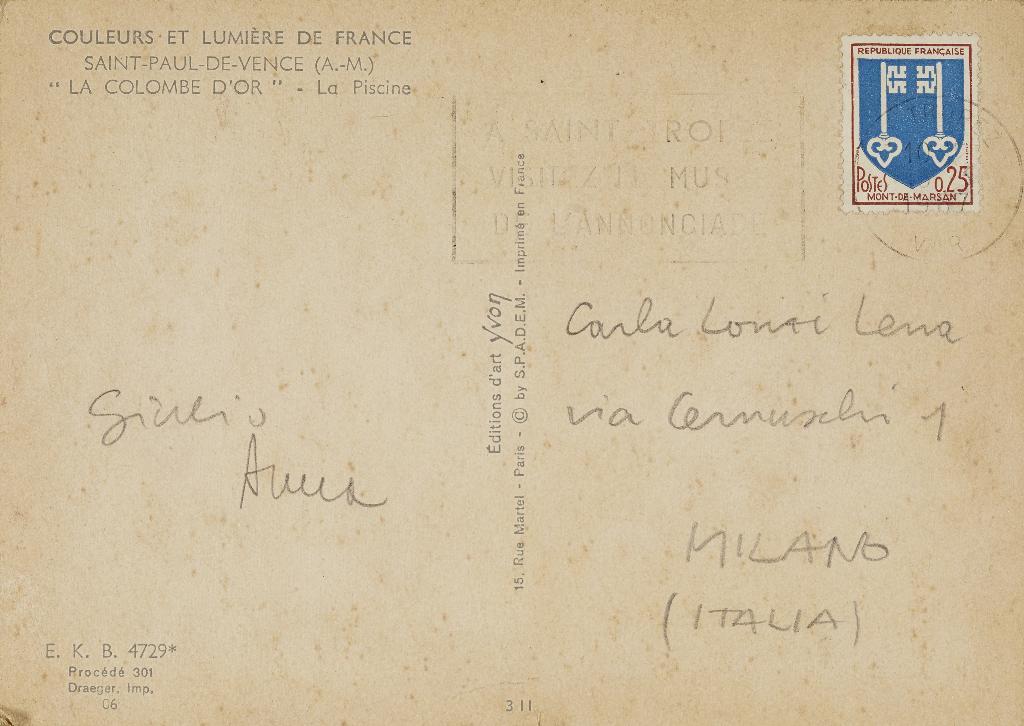 COULEURS ET LUMIÈRE DE FRANCE
SAINT-PAUL-DE-VENCE (A.-M.)
“ LA COLOMBE D'OR ” - La Piscine
A SAINT TROPEZ
VISITEZ LE MUSEE
DE L'ANNONCIADE
REPUBLIQUE FRANÇAISE
POSTES 0.25
MONT-DE-MARSAN
VAR
Éditions d'art Yvon
15, Rue Martel - Paris - © by S.P.A.D.E.M. - Imprimé en France
Carla Lonzi Lena
via Cernuschi 1
MILANO
(ITALIA)
Giulio
Anna
E. K. B. 4729*
Procédé 301
Draeger, Imp.
06
3 11